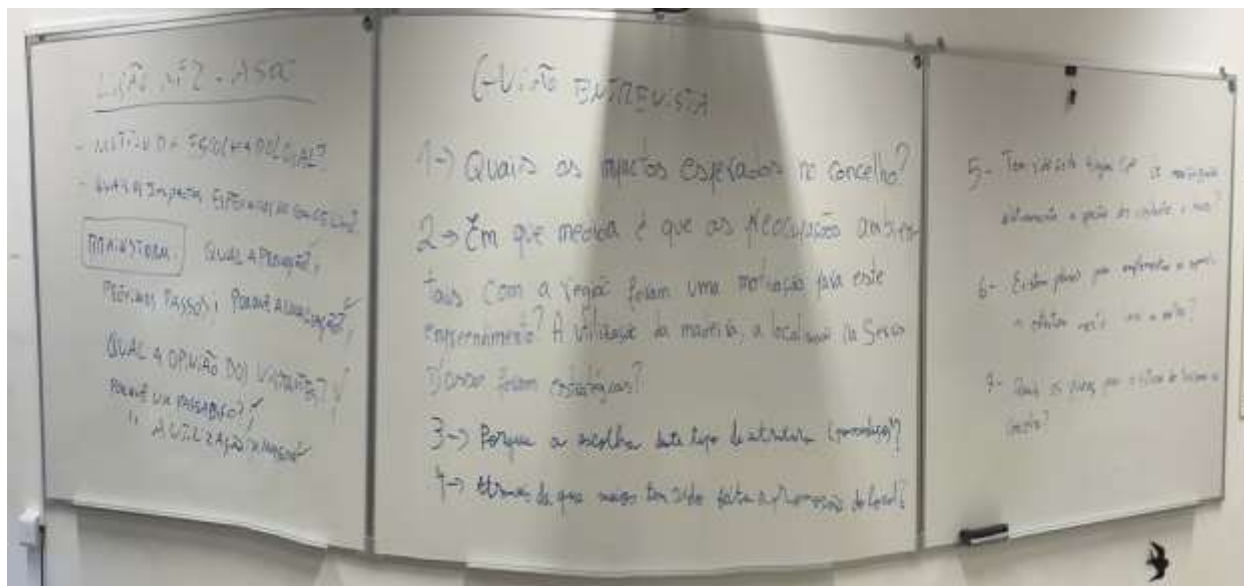 LIÇÃO Nº2 - 
- MOTIVO DA ESCOLHA DO LOCAL?
- QUAIS OS IMPACTOS ESPERADOS NO CONCELHO?
BRAINSTORM: QUAL A
PRÓXIMOS PASSOS; PORQUÊ A LOCALIZAÇÃO?
QUAL A OPINIÃO DOS VISITANTES?
PORQUÊ UM PASSADIÇO?
" A UTILIZAÇÃO DA MADEIRA
GUIÃO ENTREVISTA
1-> Quais os impactos esperados no concelho?
2-> Em que medida é que as preocupações ambien-
tais com a região foram uma motivação para este
empreendimento? A utilização da madeira, a localização na Serra
D'ossa foram estratégicas?
3-> Porque a escolha deste tipo de estrutura (passadiço)?
4-> Através de que meios tem sido feita a promoção do local?
5- Tem sido
a opção de
6- Existem planos para
7- Quais os planos para o futuro do turismo no
concelho?